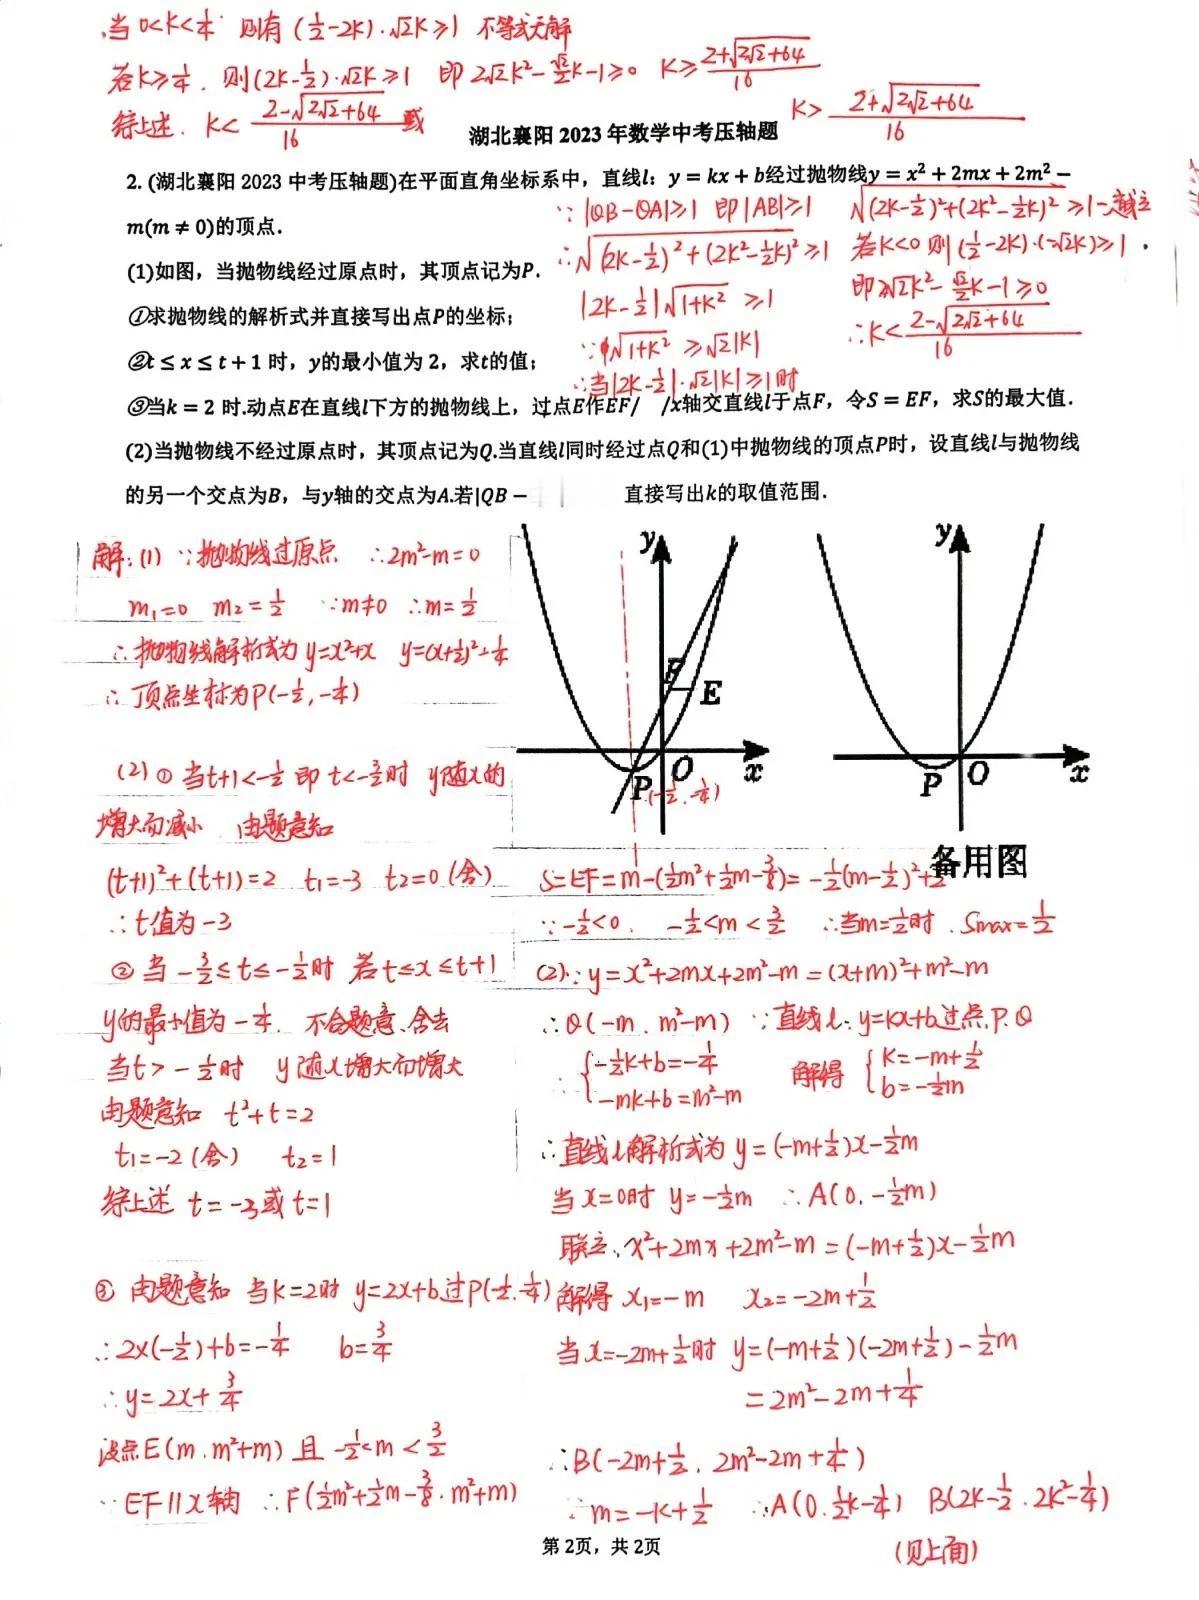 当 0<K<1/4 则有 (1/2-2K)·√2K≥1 不等式无解
若K≥1/4. 则(2K-1/2)·√2K≥1 即 2√2K²-√2/2K-1≥0 K≥(2+√(2√2+64))/16
综上述. K<(2-√(2√2+64))/16 或 K>(2+√(2√2+64))/16
湖北襄阳 2023 年数学中考压轴题
2. (湖北襄阳 2023 中考压轴题)在平面直角坐标系中，直线l：y = kx + b经过抛物线y = x² + 2mx + 2m² −
m(m ≠ 0)的顶点.
(1)如图，当抛物线经过原点时，其顶点记为P.
①求抛物线的解析式并直接写出点P的坐标；
②t ≤ x ≤ t + 1 时，y的最小值为 2，求t的值；
③当k = 2 时.动点E在直线l下方的抛物线上，过点E作EF/ /x轴交直线l于点F，令S = EF，求S的最大值.
(2)当抛物线不经过原点时，其顶点记为Q.当直线l同时经过点Q和(1)中抛物线的顶点P时，设直线l与抛物线
的另一个交点为B，与y轴的交点为A.若|QB −
直接写出k的取值范围.
∵|QB-QA|≥1 即|AB|≥1
∴√((2K-1/2)²+(2K²-1/2K)²)≥1
|2K-1/2|√(1+K²)≥1
∵√(1+K²)≥√2|K|
∴当|2K-1/2|·√2|K|≥1时
√((2K-1/2)²+(2K²-1/2K)²)≥1一定成立
若K<0 则(1/2-2K)·(-√2K)≥1.
即2√2K²-√2/2K-1≥0
∴K<(2-√(2√2+64))/16
解：(1) ∵抛物线过原点 ∴2m²-m=0
m₁=0 m₂=1/2 ∵m≠0 ∴m=1/2
∴抛物线解析式为y=x²+x y=(x+1/2)²-1/4
∴顶点坐标为P(-1/2,-1/4)
(2)① 当t+1<-1/2 即 t<-3/2时 y随x的
增大而减小 由题意知
(t+1)²+(t+1)=2 t₁=-3 t₂=0 (舍)
∴t值为-3
② 当 -3/2≤t≤-1/2时 若t≤x≤t+1
y的最小值为-1/4. 不合题意、舍去
当t>-1/2时 y随x增大而增大
由题意知 t²+t=2
t₁=-2 (舍) t₂=1
综上述 t=-3或t=1
③ 由题意知 当K=2时 y=2x+b过P(-1/2,-1/4)
∴2×(-1/2)+b=-1/4 b=3/4
∴y=2x+3/4
设点E(m,m²+m) 且 -1/2<m<3/2
∵EF∥x轴 ∴F(1/2m²+1/2m-3/8,m²+m)
y
F
E
P
O
x
(-1/2,-1/4)
y
P
O
x
备用图
S=EF=m-(1/2m²+1/2m-3/8)=-1/2(m-1/2)²+1/2
∵-1/2<0. -1/2<m<3/2 ∴当m=1/2时. Smax=1/2
(2)∵y=x²+2mx+2m²-m=(x+m)²+m²-m
∴Q(-m,m²-m) ∵直线l:y=Kx+b过点P、Q
∴{-1/2K+b=-1/4 解得{K=-m+1/2
-mK+b=m²-m b=-1/2m
∴直线l解析式为y=(-m+1/2)x-1/2m
当x=0时 y=-1/2m ∴A(0,-1/2m)
联立. x²+2mx+2m²-m=(-m+1/2)x-1/2m
解得 x₁=-m x₂=-2m+1/2
当x=-2m+1/2时 y=(-m+1/2)(-2m+1/2)-1/2m
=2m²-2m+1/4
∴B(-2m+1/2,2m²-2m+1/4)
∵m=-K+1/2 ∴A(0,1/2K-1/4) B(2K-1/2,2K²-1/4)
(见上面)
第 2页，共 2页